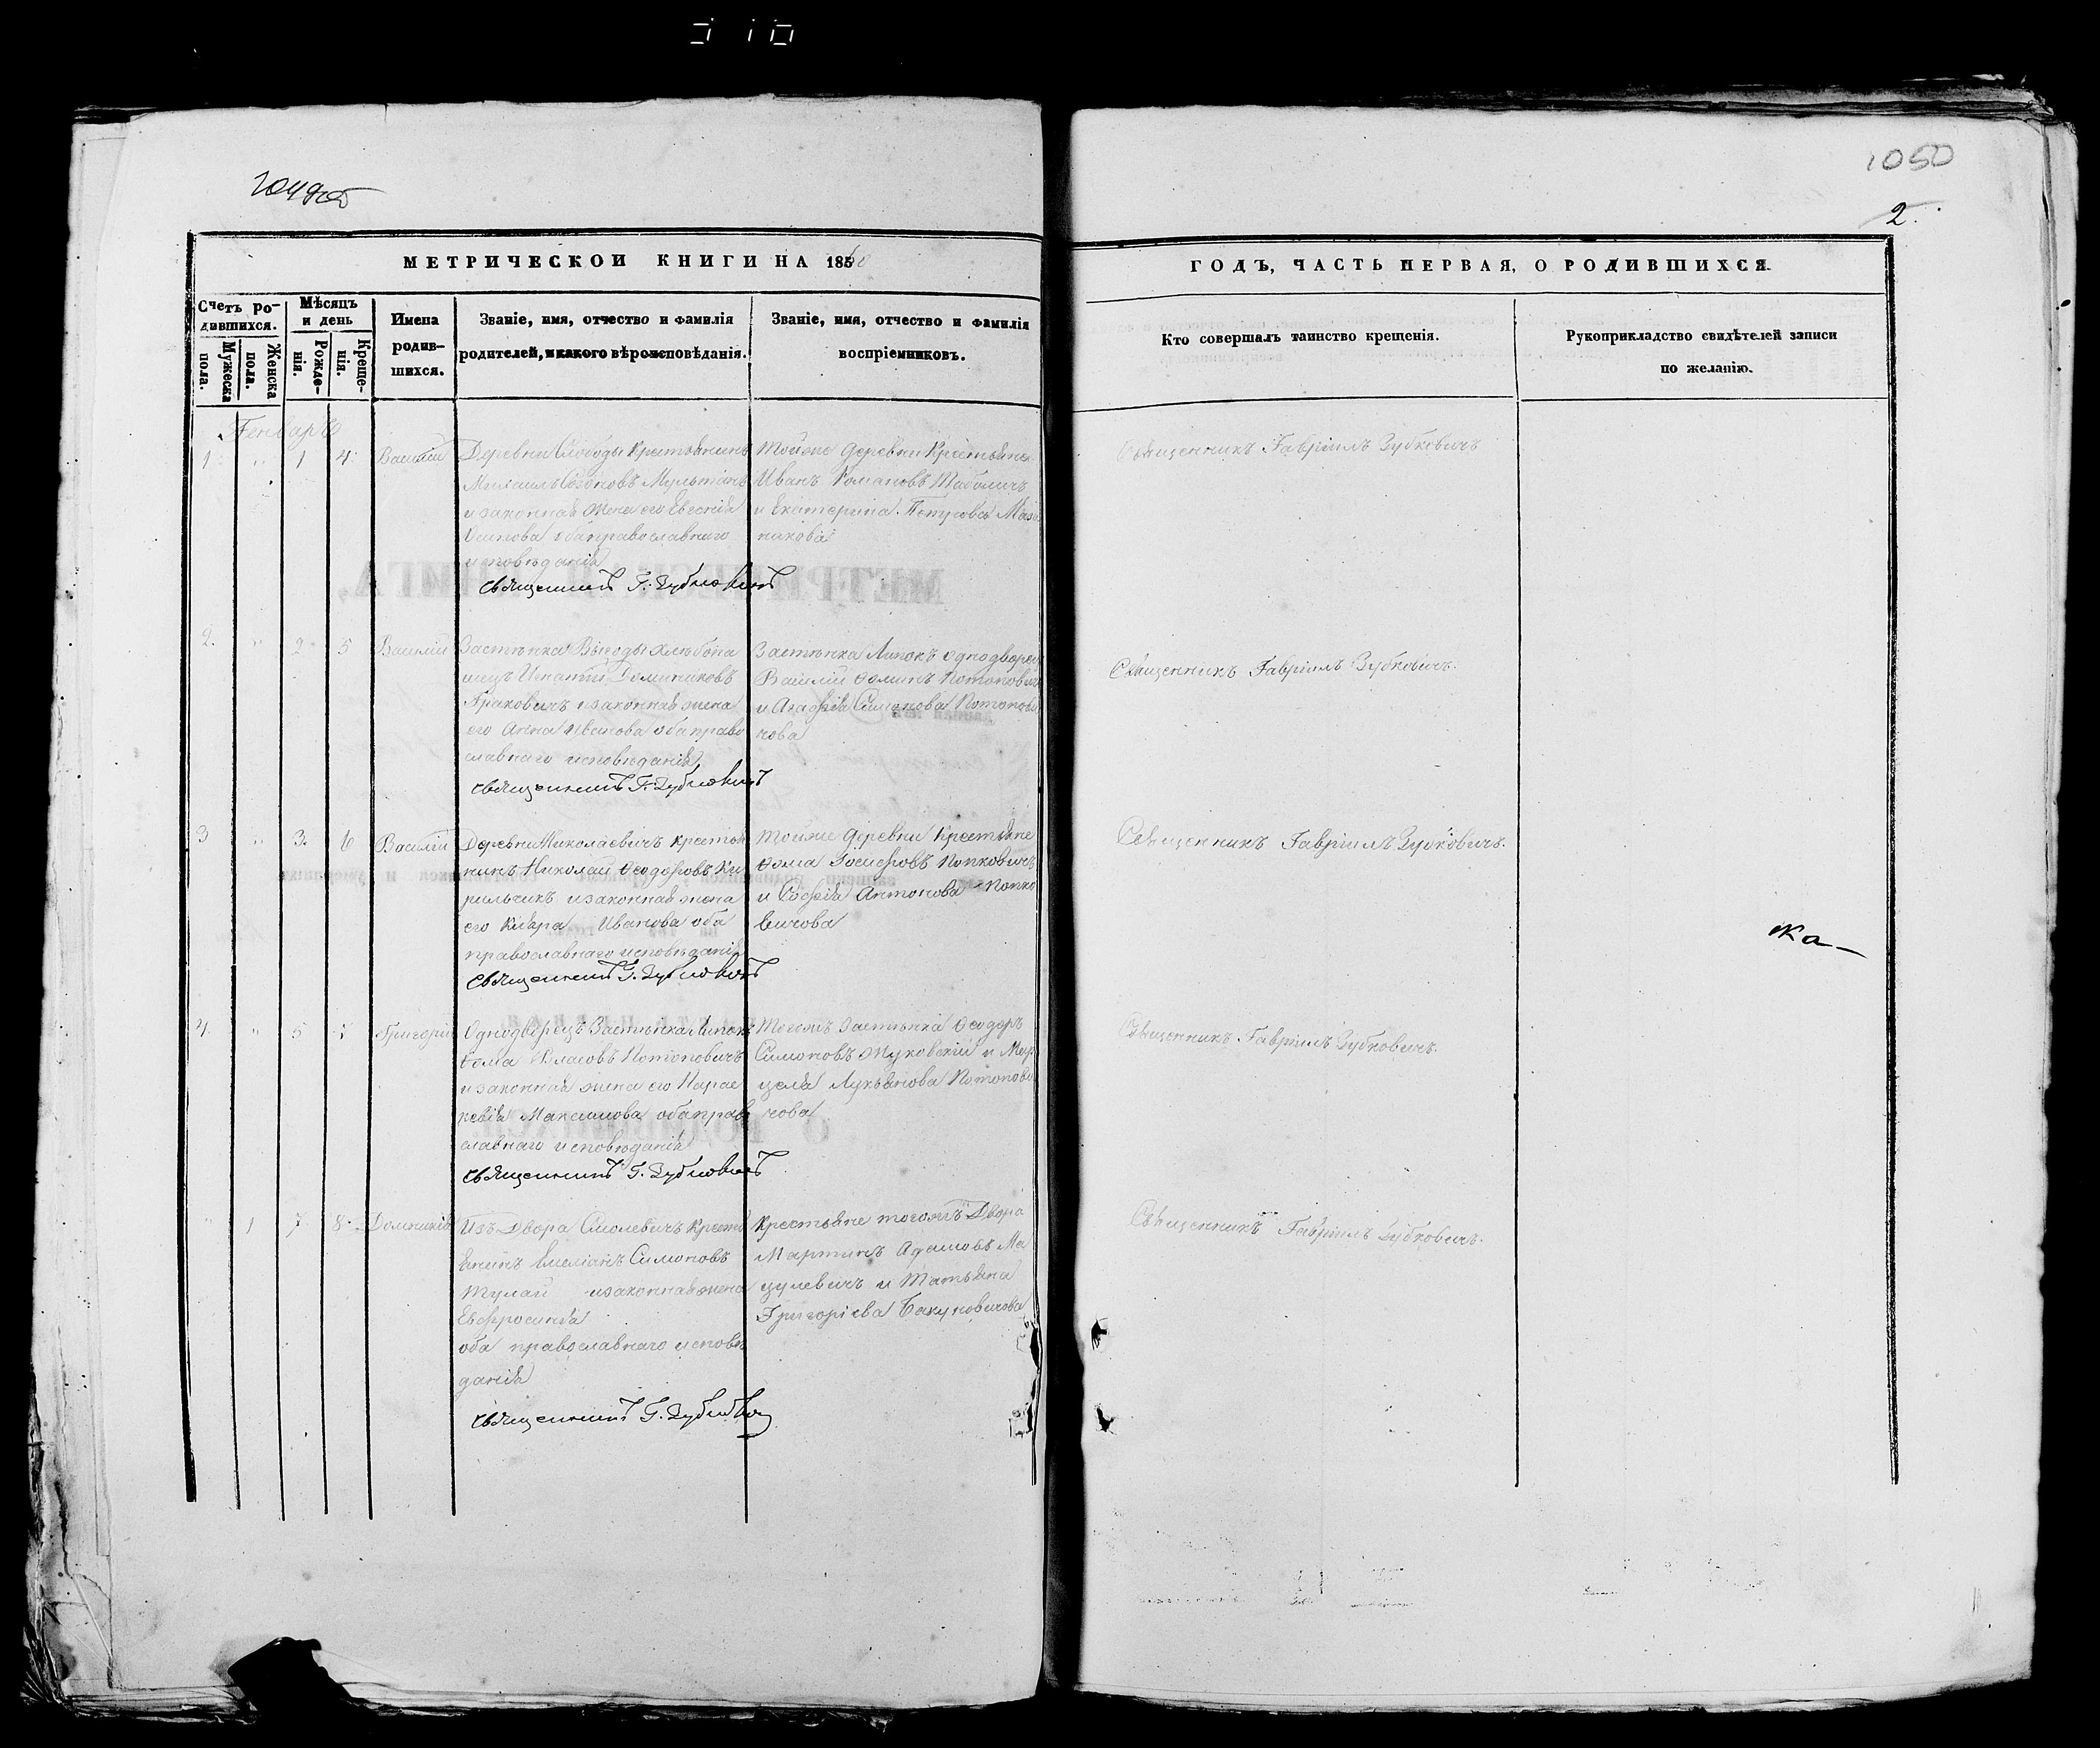 1050
2.
МЕТРИЧЕСКОЙ КНИГИ НА 1860
ГОДЪ, ЧАСТЬ ПЕРВАЯ, О РОДИВШИХСЯ.
Счетъ ро-
дившихся.
Мужеска
пола.
Женска
пола.
Мѣсяцъ
и день
Рожде-
нія.
Креще-
нія.
Имена
родив-
шихся.
Званіе, имя, отчество и фамилія
родителей, и какого вѣроисповѣданія.
Званіе, имя, отчество и фамилія
воспріемниковъ.
Кто совершалъ таинство крещенія.
Рукоприкладство свидѣтелей записи
по желанію.
Генварь
1 " 1 4 Василій
Деревни Слободы Крестьянинъ
Михаилъ Мультанъ
и законная жена его Евгенія
Осипова оба православнаго
исповѣданія
Священникъ Г. Зубковичъ
Тойже деревни Крестьяне
Иванъ Романовъ Таболичъ
и Екатерина Петрова
никова
Священникъ Гавріилъ Зубковичъ
2. " 2 5 Василій
Застѣнка Выгоды хлѣбопа
шецъ Игнатій Доминиковъ
Граковичъ и законная жена
его Анна Иванова оба право
славнаго исповѣданія
Священникъ Г. Зубковичъ
Застѣнка Липокъ однодворецъ
Василій Ѳоминъ Потоповичъ
и Агафія Симонова Потопови
чова
Священникъ Гавріилъ Зубковичъ.
3 " 3. 6 Василій
Деревни Миколаевичъ крестья
нинъ Николай Ѳеодоровъ Ки
рильчикъ и законная жена
его Кіяра Иванова оба
православнаго исповѣданія
Священникъ Г. Зубковичъ
Тойже деревни Крестьяне
Ѳома Іосифовъ Попковичъ
и Софія Антонова Попко
вичова
Священникъ Гавріилъ Зубковичъ.
ка
4. " 5 7 Григорій
Однодворецъ Застѣнка Липокъ
Ѳома Власовъ Потоповичъ
и законная жена его Парас
кевія Максимова оба право
славнаго исповѣданія
Священникъ Г. Зубковичъ
Тогожъ Застѣнка Ѳеодоръ
Симоновъ Жуковскій и Мар
целя Лукьянова Потопови
чова
Священникъ Гавріилъ Зубковичъ.
" 1 7 8 Домникія
Изъ Двора Смолевичъ Кресть
янинъ Емеліанъ Симоновъ
Тулай и законная жена
Евфросинія
оба православнаго исповѣ
данія
Священникъ Г. Зубковичъ
Крестьяне тогожъ Двора
Мартинъ Адамовъ Ма
цулевичъ и Татьяна
Григоріева Бакуновичова
Священникъ Гавріилъ Зубковичъ.